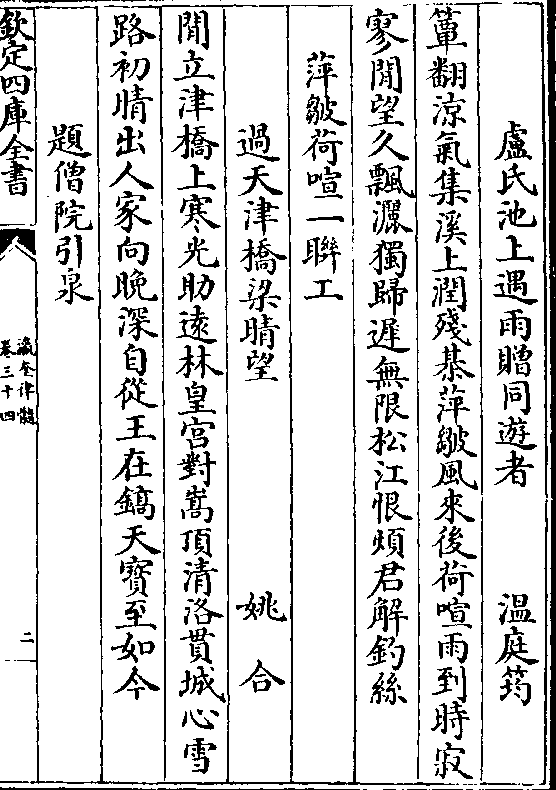 盧氏池上遇雨贈同遊者　温庭筠
簟翻涼氣集溪上潤殘棊萍皺風來後荷喧雨到時寂
寥閒望久飄灑獨歸遲無限松江恨煩君解釣絲
萍皺荷喧一聯工
過天津橋梁晴望　姚合
閒立津橋上寒光助遠林皇宮對嵩頂清洛貫城心雪
路初晴出人家向晚深自從王在鎬天寶至如今
題僧院引泉
欽定四庫全書
瀛奎律髓
卷三十四
二